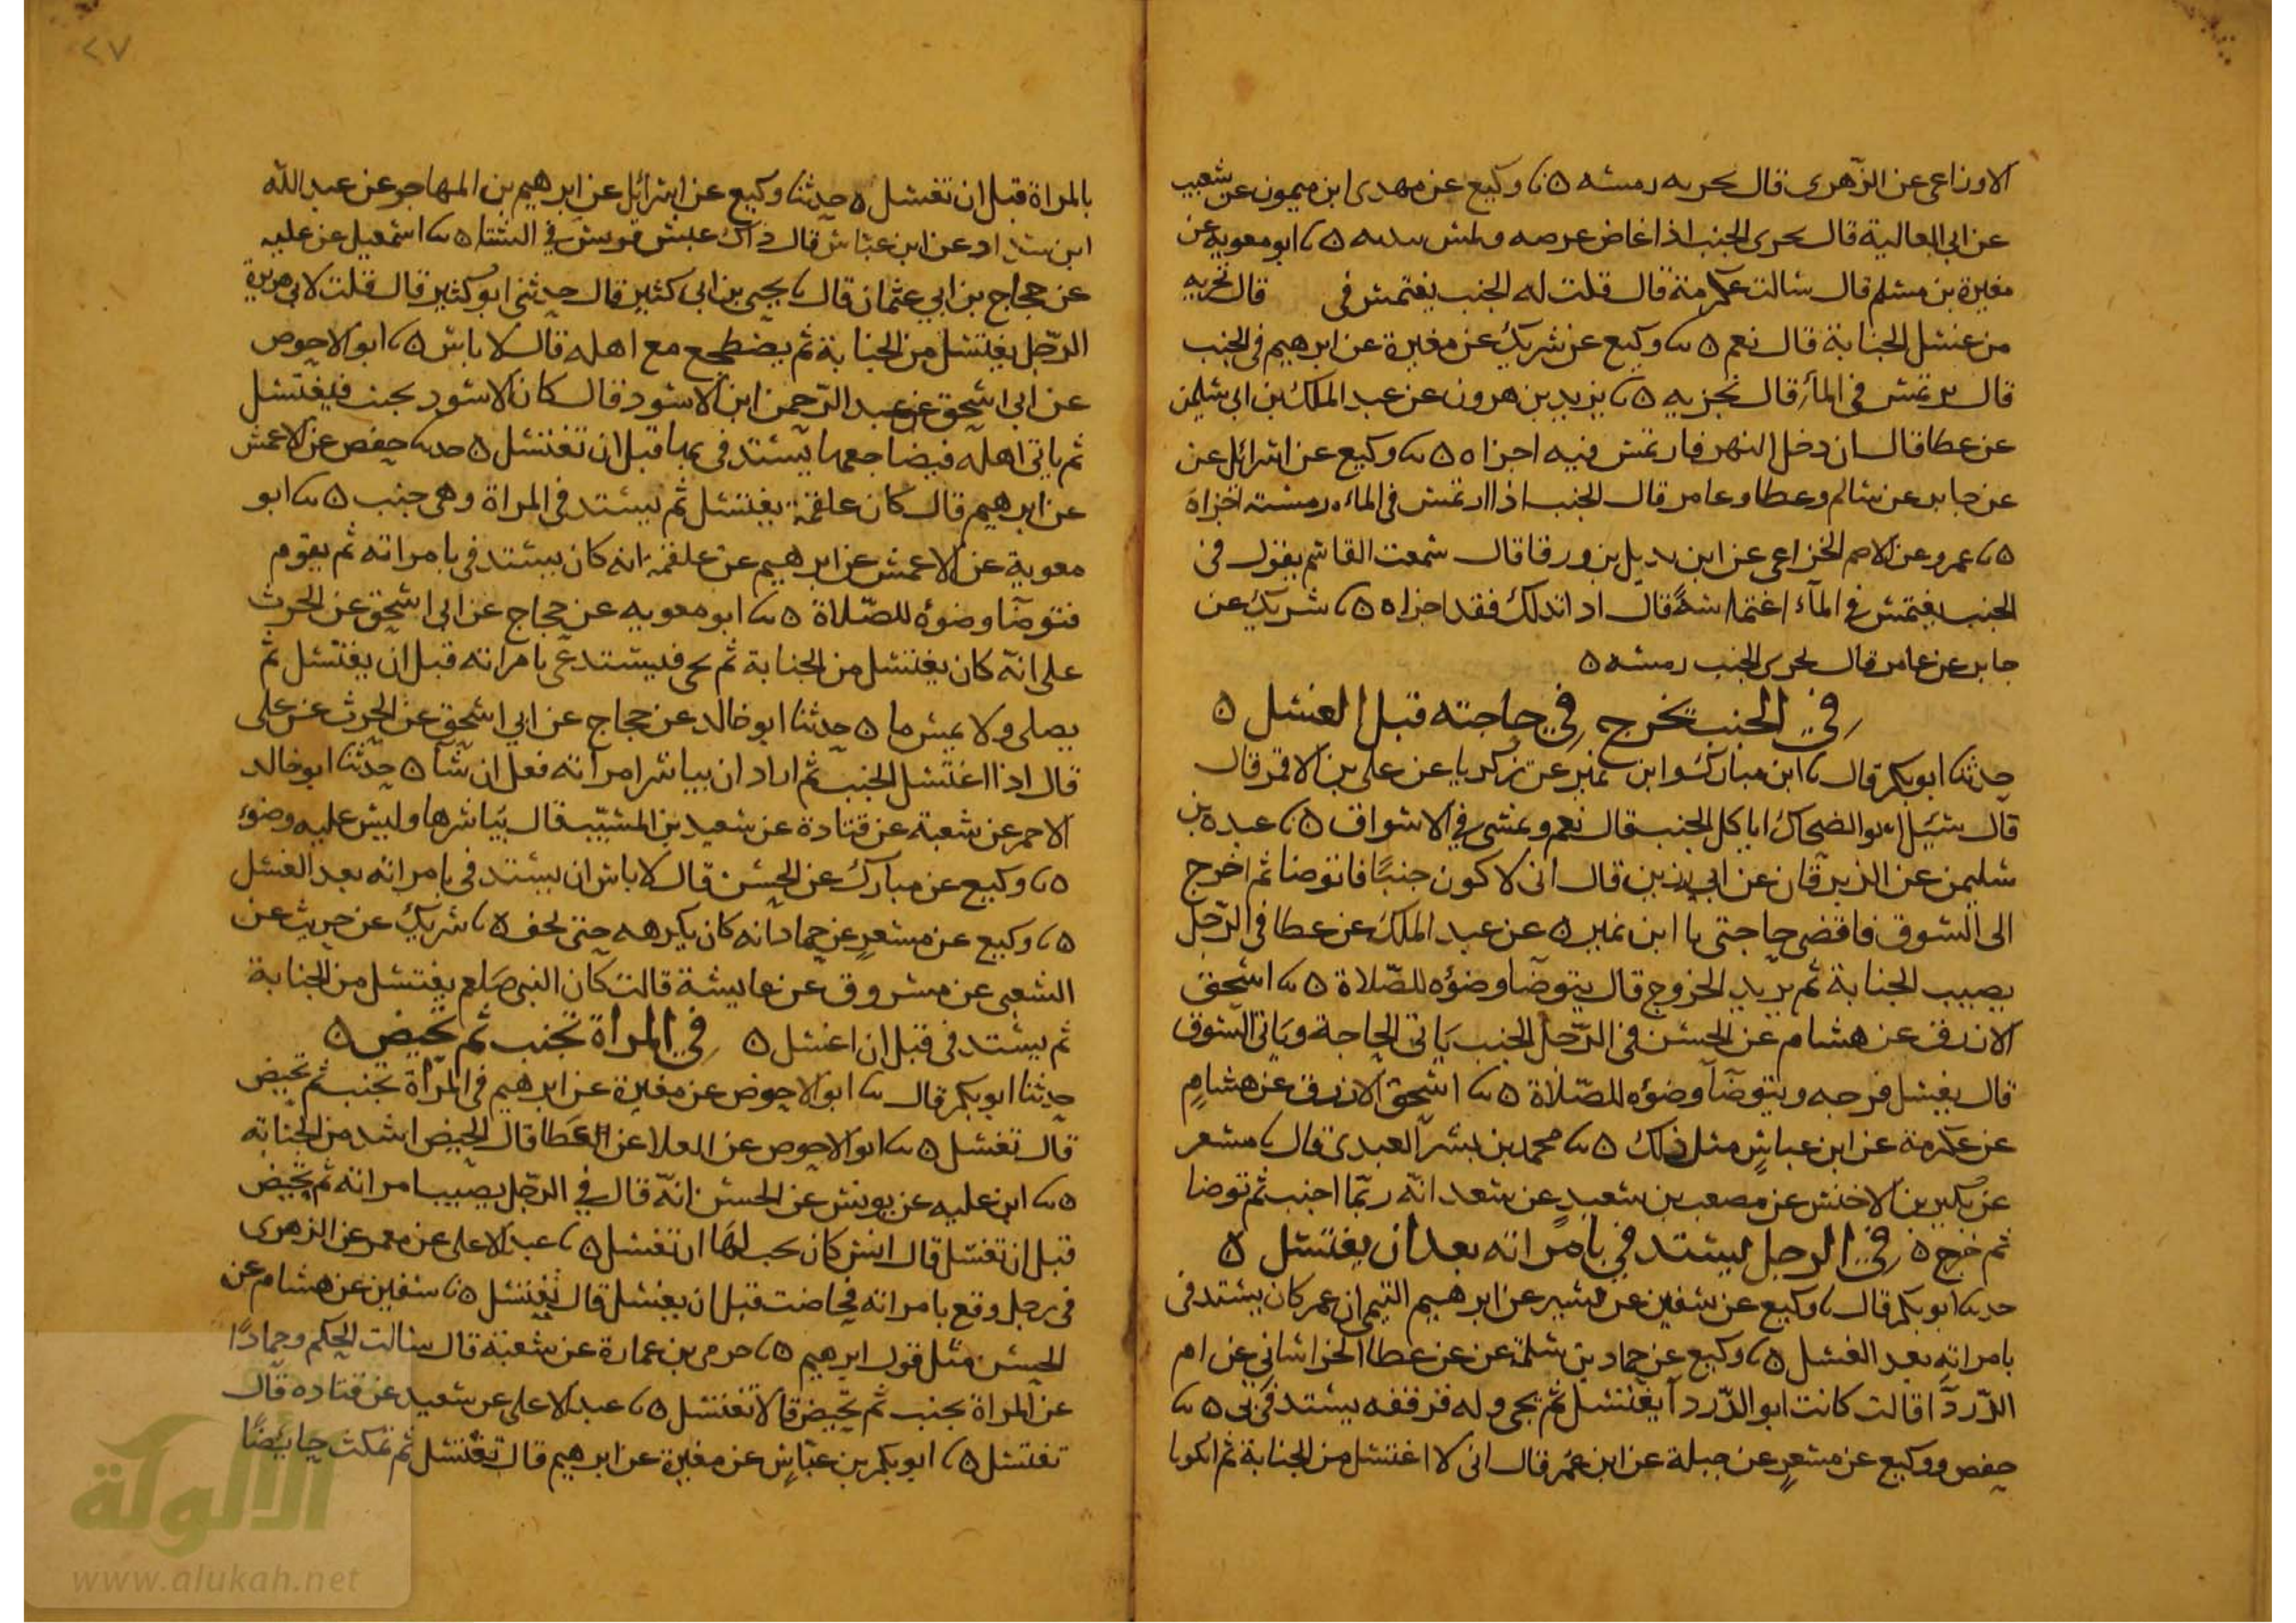 الاوزاعى عن الزهرى قال يجزيه رمسه ٥ نا وكيع عن مهدى ابن ميمون عن شعيب
عن ابى العالية قال يجزى الجنب اذا غاص غوصه ومس بيديه ٥ نا ابو معويه عن
مغيرة بن مسلم قال سالت عكرمة قال قلت له الجنب يغتمس فى قال تجزيه
من غسل الجنابة قال نعم ٥ نا وكيع عن شريك عن مغيرة عن ابرهيم فى الجنب
قال يرتمس فى الماء قال تجزيه ٥ نا يزيد بن هرون عن عبد الملك بن ابى سليمن
عن عطا قال ان دخل النهر فارتمس فيه اجزاه ٥ نا وكيع عن اسرائل عن
عن جابر عن سالم وعطا وعامر قال الجنب اذا ارتمس فى الماء رمسة اجزاه
٥ نا عمرو عن الاصم الخزاعى عن ابن بديل بن ورقا قال سمعت القاسم يقول فى
الجنب يغتمس فى الماء اغتماسة قال اذا تدلك فقد اجزاه ٥ نا شريك عن
جابر عن عامر قال يجزى الجنب رمسه ٥
فى الجنب يخرج فى حاجته قبل الغسل ٥
حدثنا ابو بكر قال نا ابن مبارك وابن نمير عن زكريا عن على بن الاقمر قال
قال سئيل ابو الضحاك اياكل الجنب قال نعم ويمشى فى الاسواق ٥ نا عبدة بن
سليمن عن الزبرقان عن ابى رزين قال انى لاكون جنبًا فاتوضا ثم اخرج
الى السوق فاقضى حاجتى نا ابن نمير ٥ عن عبد الملك عن عطا فى الرجل
يصيب الجنابة ثم يريد الخروج قال يتوضا وضوءه للصلاة ٥ نا اسحق
الازرق عن هشام عن الحسن فى الرجل الجنب ياتى الحاجة وياتى السوق
قال يغسل فرجه ويتوضا وضوءه للصلاة ٥ نا اسحق الازرق عن هشام
عن عكرمة عن ابن عباس مثل ذلك ٥ نا محمد بن بشر العبدى قال نا مسعر
عن بكير بن الاخنس عن مصعب بن سعيد عن سعد انه ربما اجنب ثم توضا
ثم خرج ٥ فى الرجل ليستدفى بامراته بعد ان يغتسل ٥
حدثنا ابو بكر قال نا وكيع عن سفين عن بشير عن ابرهيم التيمى ان عمر كان يستدفى
بامراته بعد الغسل ٥ نا وكيع عن حماد بن سلمة عن عن عطا الخراسانى عن ام
الدردا قالت كانت ابو الدردا يغتسل ثم يجى وله قرقفه يستدفى بى ٥ نا
حفص ووكيع عن مسعر عن جبلة عن ابن عمر قال انى لا اغتسل من الجنابة ثم اتكوا
٢٧
بالمراة قبل ان تغتسل ٥ حدثنا وكيع عن اسرائيل عن ابرهيم بن المهاجر عن عبد الله
ابن شداد عن ابن عباس قال ذاك عيش قريش فى الشتا ٥ نا اسمعيل عن عليه
عن حجاج بن ابى عثمان قال نا يحيى بن ابى كثير قال حدثنى ابو كثير قال قلت لابى هريرة
الرجل يغتسل من الجنابة ثم يضطجع مع اهله قال لا باس ٥ نا ابو الاحوص
عن ابى اسحق عن عبد الرحمن ابن الاسود قال كان الاسود يجنب فيغتسل
ثم ياتى اهله فيضاجعها يستدفى بها قبل ان تغتسل ٥ حدثنا حفص عن الاعمش
عن ابرهيم قال كان علقمة يغتسل ثم يستدفى المراة وهى جنب ٥ نا ابو
معوية عن الاعمش عن ابرهيم عن علقمة انه كان يستدفى بامراته ثم يقوم
فتوضا وضوءه للصلاة ٥ نا ابو معويه عن حجاج عن ابى اسحق عن الحرث
على انه كان يغتسل من الجنابة ثم يجى فيستدعى بامراته قبل ان يغتسل ثم
يصلى ولا يمس ما ٥ حدثنا ابو خالد عن حجاج عن ابى اسحق عن الحرث عن على
قال اذا اغتسل الجنب ثم اراد ان يباشر امراته فعل ان شا ٥ حدثنا ابو خالد
الاحمر عن شعبة عن قتادة عن سعيد بن المسيب قال يباشرها وليس عليه وضوء
٥ نا وكيع عن مبارك عن الحسن قال لا باس ان يستدفى بامراته بعد الغسل
٥ نا وكيع عن مسعر عن حماد انه كان يكرهه حتى يجف ٥ نا شريك عن حريث عن
الشعبى عن مسروق عن عايشة قالت كان النبى صلعم يغتسل من الجنابة
ثم يستدفى قبل ان اغتسل ٥ فى المراة تجنب ثم تحيض ٥
حدثنا ابو بكر قال نا ابو الاحوص عن مغيرة عن ابرهيم فى المراة تجنب ثم تحيض
قال تغتسل ٥ نا ابو الاحوص عن العلا عن العطا قال الحيض اشد من الجنابة
٥ نا ابن عليه عن يونس عن الحسن انه قال فى الرجل يصيب امراته ثم تحيض
قبل ان تغتسل قال انس كان يحب لها ان تغتسل ٥ نا عبد الاعلى عن معمر عن الزهرى
فى رجل وقع بامراته فحاضت قبل ان يغتسل قال تغتسل ٥ نا سفين عن هشام عن
الحسن مثل قول ابرهيم ٥ نا حرمى بن عمارة عن شعبة قال سالت الحكم وحمادًا
عن المراة تجنب ثم تحيض قالا تغتسل ٥ نا عبد الاعلى عن سعيد عن قتاده قال
تغتسل ٥ نا ابو بكر بن عياش عن مغيرة عن ابرهيم قال تغتسل ثم تمكث حايضًا
الألوكة
www.alukah.net